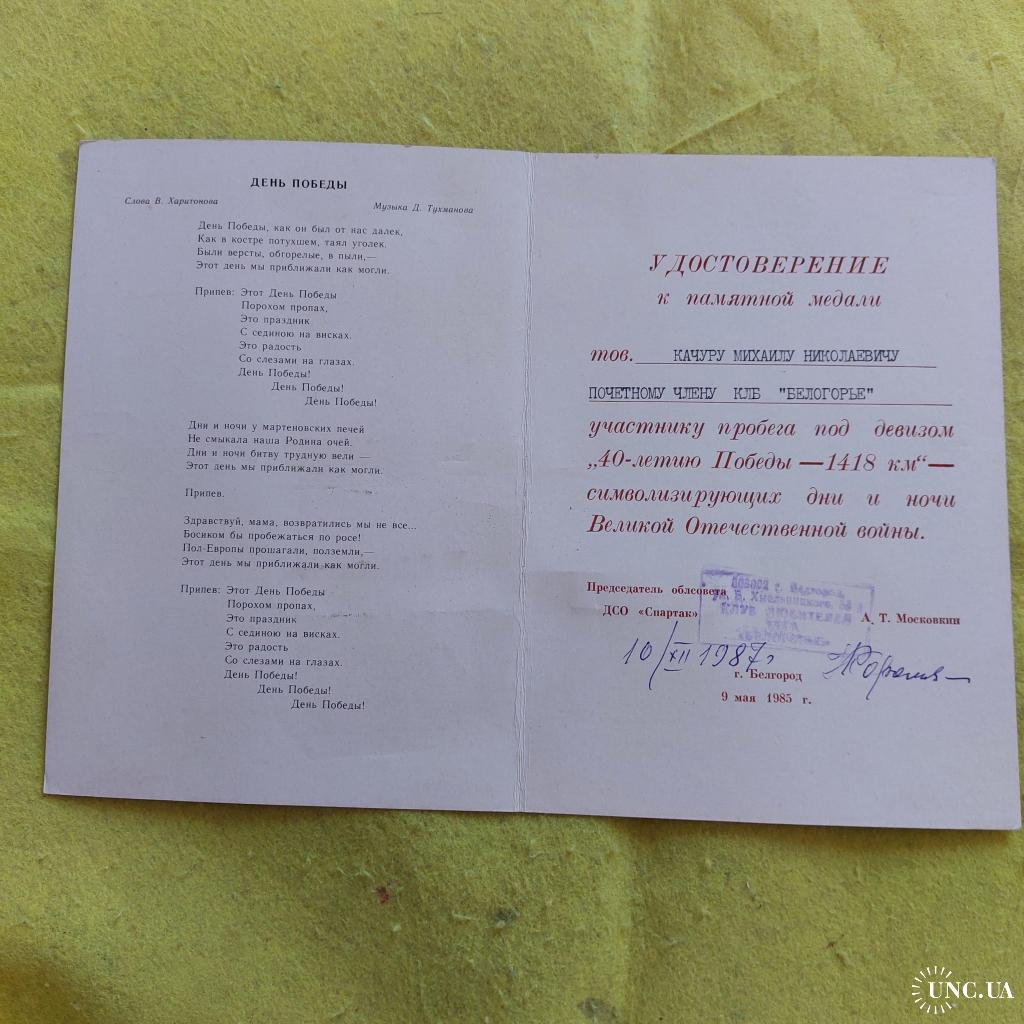 ДЕНЬ ПОБЕДЫ
Слова В. Харитонова
Музыка Д. Тухманова
День Победы, как он был от нас далек,
Как в костре потухшем, таял уголек.
Были версты, обгорелые, в пыли,—
Этот день мы приближали как могли.
Припев: Этот День Победы
Порохом пропах,
Это праздник
С сединою на висках.
Это радость
Со слезами на глазах.
День Победы!
День Победы!
День Победы!
Дни и ночи у мартеновских печей
Не смыкала наша Родина очей.
Дни и ночи битву трудную вели —
Этот день мы приближали как могли.
Припев.
Здравствуй, мама, возвратились мы не все...
Босиком бы пробежаться по росе!
Пол-Европы прошагали, полземли,—
Этот день мы приближали как могли.
Припев: Этот День Победы
Порохом пропах,
Это праздник
С сединою на висках.
Это радость
Со слезами на глазах.
День Победы!
День Победы!
День Победы!
УДОСТОВЕРЕНИЕ
к памятной медали
тов. КАЧУРУ МИХАИЛУ НИКОЛАЕВИЧУ
ПОЧЕТНОМУ ЧЛЕНУ КЛБ "БЕЛОГОРЬЕ"
участнику пробега под девизом
„40-летию Победы —1418 км“—
символизирующих дни и ночи
Великой Отечественной войны.
Председатель облсовета
ДСО «Спартак»
А. Т. Московкин
г. Белгород
ул. Б. Хмельницкого
КЛУБ ЛЮБИТЕЛЕЙ
БЕГА
"БЕЛОГОРЬЕ"
10/XII 1987г
г. Белгород
9 мая 1985 г.
UNC.UA